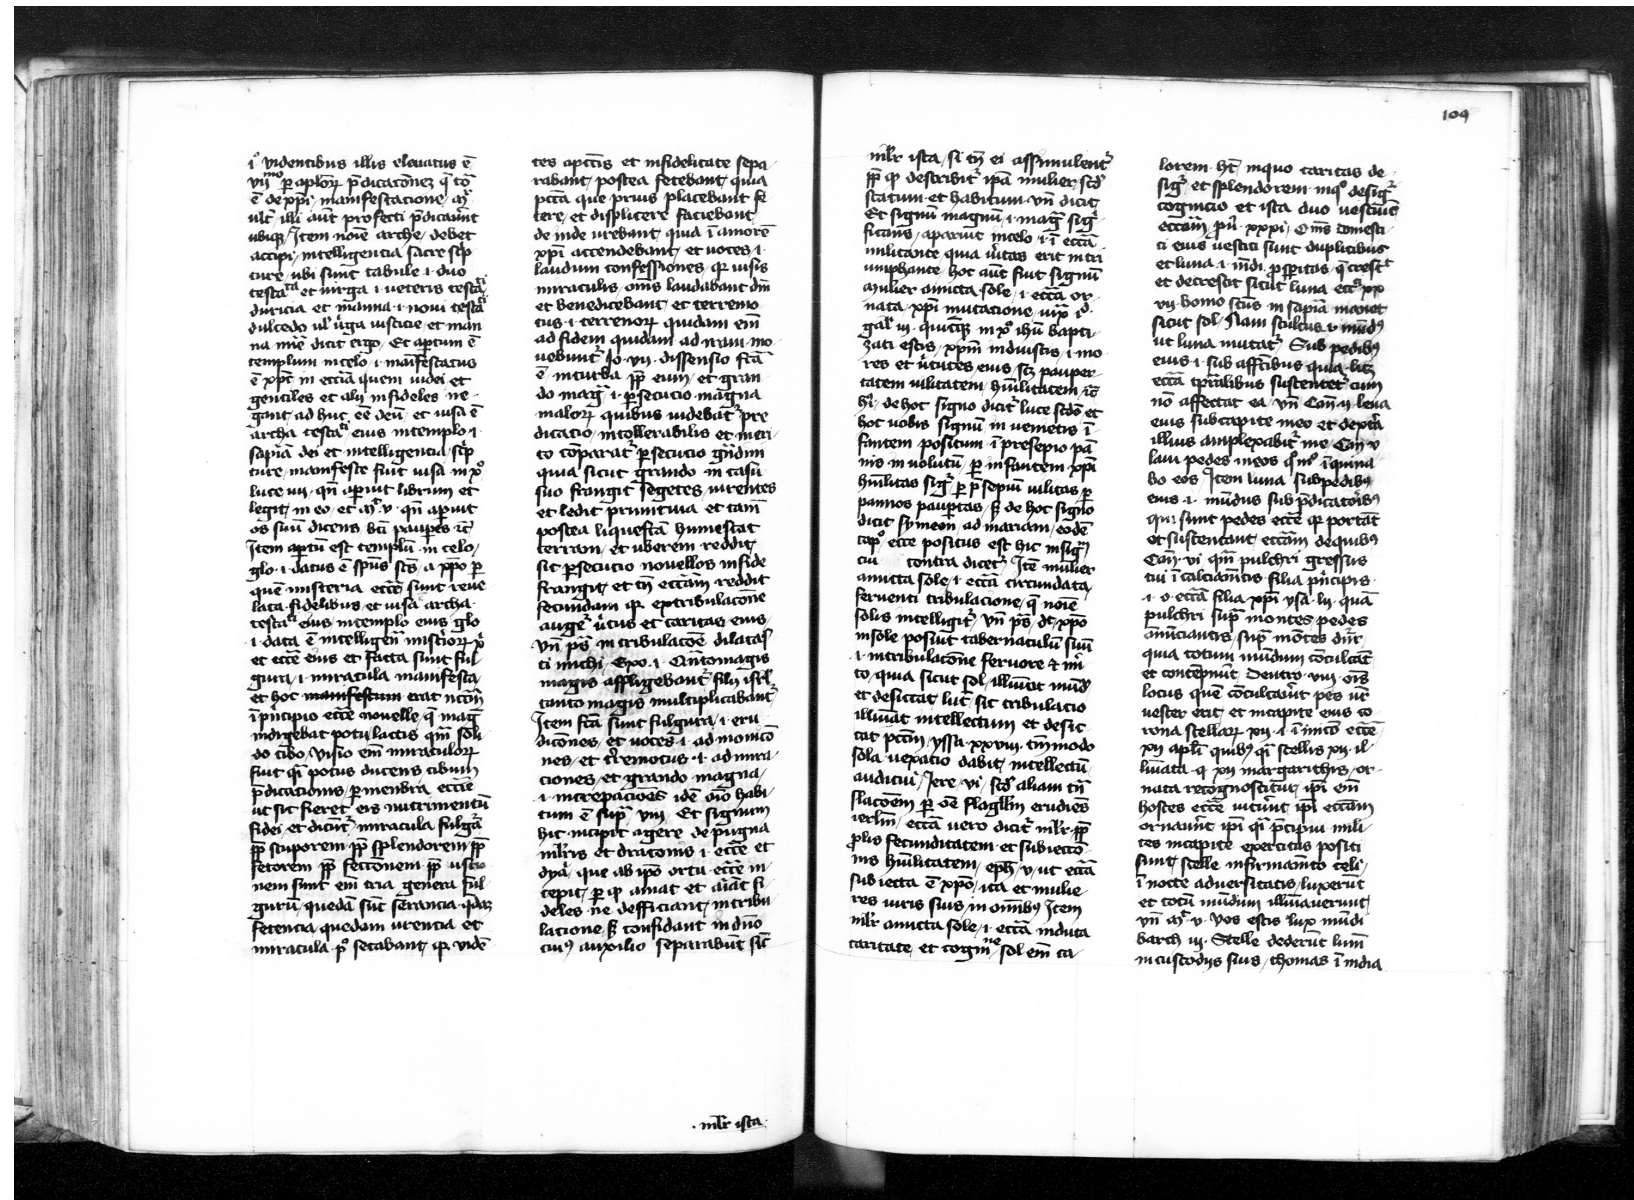 i° videntibus illis elevatus ē
vii^mo p apl'oꝝ p̄dicatōnez q̄ tō
ē de xpī manifestacione mᵗ
ult' illi aūt profecti p̄dicaūnt
ubiqꝫ Item noīe arche debet
accipi intelligencia sacre sc'p
ture ubi sunt tabule .i. duo
testa^ta et virga .i. veteris testaᵗⁱ
duricia et manna .i. novi testaᵗⁱ
dulcedo ul' v'ga iusticie et man
na mīe dicit ergo Et ap̄tum ē
templum in celo .i. manifestatus
ē xpc̄ in ecc'ia quem iudei et
gentiles et alii infideles ne
gant ad huc eē deū et visa ē
archa testaᵗⁱ eius in templo .i.
sapīa dei et intelligencia sc'p
ture manifeste fuit visa in xp̄o
luce iiii qn̄ ap̄uit librum et
legit in eo et mᵗ v qn̄ ap̄uit
os suū dicens bt̄i paup̄es ꝛc̄
Item ap̄tū est templū in celo
glo .i. datus ē sp̄us sc̄s a xp̄o p
quē misteria ecc̄e sunt reve
lata fidelibus et visa archa
testaᵗⁱ eius in templo eius glo
.i. data ē intelligen̄ mist'ioꝝ xⁱ
et ecc̄e eius et facta sunt ful
gura .i. miracula manifesta
et hoc manifestum erat n̄cc̄m
ī p'ncipio ecc̄e novelle q̄ maḡ
indigebat potu lactis qm̄ soli
do cibo visio em̄ miraculoꝝ
fuit q̄i potus ducens cibum
p̄dicationis p membra ecc̄ie
ut sic fieret eis nutrimentū
fidei et dicūt' miracula fulg'a
pp̄ stuporem pp̄ splendorem pp̄
fetorem pp̄ fecc̄onem pp̄ ustio
nem sunt em̄ tria genera ful
gurū quedā sūt s'erancia q̄daꝫ
fetencia quedam urencia et
miracula p° secabant qꝫ vidē
tes a pcc̄is et infidelitate sepa
rabant postea fetebant quia
pcc̄a que prius placebant fe
tere et displicere faciebant
de inde urebant quia ī amorē
xpī accendebant et voces .i.
laudum confessiones qꝛ visis
miraculis om̄s laudabant dm̄
et benedicebant et terremo
tus .i. terrenoꝝ quidam em̄
ad fidem quidam ad iram mo
vebunt' Io vii dissensio fc̄a
ē in turba pp̄ eum et gran
do maḡ .i. p̄secucio magna
maloꝝ quibus videbat' pre
dicacio intollerabilis et meri
to cōparat' p̄secucio g'ndini
quia sicut grando in casu
suo frangit segetes virentes
et ledit primitiva et tam̄
postea liquefc̄a humectat
terram et uberem reddit
sic p̄secucio novellos in fide
frangit et tn̄ ecc̄iam reddit
fecundam qꝛ ex tribulacōne
auget' v'tus et caritas eius
vn̄ ps̄ in tribulacōe dilatas
ti michi Exo .i. Quātomagis
magis affligebant' filii isrl'
tanto magis multiplicabant'
Item fc̄a sunt fulgura .i. eru
dicōnes et voces .i. ad monicō
nes et t'remotus .i. ad mira
ciones et grando magna
.i. increpaciōes idē om̄o habi
tum ē sup' viii Et signum
hic incipit agere de pugna
ml'ris et draconis .i. ecc̄e et
dyā que ab ip̄o ortu ecc̄e in
cepit p qꝫ armat et aīat fi
deles ne defficiant in tribu
latione sꝫ confidant in dn̄o
cui⁹ auxilio separabunt sic̄
. ml'r ista .
109
ml'r ista si tn̄ ei assimulent'
pp̄ qꝫ describit' ip̄a mulier scd'
statum et habitum vn̄ dicit
Et signū magnū .i. maḡ sig'
ficans aparuit in celo .i. ī ecc̄a
militante quia v'itas erit in tri
umphante hoc aūt fuit signū
mulier amicta sole .i. ecc̄a or
nata xpī imitacione iux' id
gal' iii quicūqꝫ in xp̄o ihū bapti
zati estis xp̄m induistis .i. mo
res et v'tutes eius scꝫ pauper
tatem vilitatem hūilitatem ꝛc̄
hi' de hoc signo dicit' luce sc̄do et
hoc vobis signū invenietis ī
fantem positum ī presepio pā
nis in volutū p infantem xpī
hūilitas sig' p p̄sepiū vilitas p
pannos paup̄tas sꝫ de hoc signo
dicit symeon ad mariam eodē
cap° ecce positus est hic in sig'
cū contra dicet' Itē mulier
amicta sole .i. ecc̄a circundata
ferventi tribulacione q̄ noīe
solis intelligit' vn̄ ps̄ dꝫ xp̄o
in sole posuit tabernaculū suū
.i. in tribulacōne fervore et m'i
to quia sicut sol illūiat mūdū
et desiccat lut' sic tribulacio
illūiat intellectum et desic
cat pcc̄m yssa xxviii tm̄modo
sola vexatio dabit intellectū
auditui Iere vi scd' aliam tn̄
slacōem p oē flagll'm erudies
ierl'm ecc̄a vero dicit' ml'r pp̄
prolis fecunditatem et subiecto
nis hūilitatem eph' v ut ecc̄a
subiecta ē xp̄o ita et mulie
res viris suis in om̄ibus Item
ml'r amicta sole .i. ecc̄a induta
caritate et cognⁿᵉ sol em̄ ca
lorem ht̄ in quo caritas de
sig' et splendorem in q° desig'
cognicio et ista duo vestiūt
ecc̄iam pu' xxxi Om̄s domesti
ci eius vestiti sunt duplicibus
et luna .i. mūdi p'sp̄itas q̄ crescit
et decrescit sicut luna ecc' xx
vii homo sc̄us in sapīa manet
sicut sol Nam stultus .i. mūd⁹
ut luna mutat' Sub pedib⁹
eius .i. sub affc̄ibus quia licꝫ
ecc̄a tp̄ralibus sustentet' cum
nō affectat ea vn̄ Can̄ ii leva
eius sub capite meo et dext'a
illius amplexabit' me Can̄ v
lavi pedes meos q°mō īquina
bo eos Item luna sub pedib⁹
eius .i. mūdus sub p̄dicatorib⁹
qui sunt pedes ecc̄e qꝫ portāt
et sustentant ecc̄iam de quibus
Can̄ vi qm̄ pulchri gressus
tui ī calciamētis filia p'ncipis
.i. o ecc̄a filia xpī ysa lii quā
pulchri sup' montes pedes
annūciantis sup' mōtes dūt'
quia totum mūdum cōculcāt
et contēpnūt Deutro viii oīs
locus quē cōculcav'it pes v't
vester erit et in capite eius co
rona stellaꝝ xii .i. ī īnicō ecc̄e
xii apl'i quib⁹ q̄i stellis xii il
lūiata q̄ xii margarithis or
nata recognoscitur ip̄i em̄
hostes ecc̄e vic'unt ip̄i ecc̄iam
ornav'unt ip̄i q̄i p̄cipui mili
tes in capite exercitus positi
sunt stelle in firmamēto celi
ī nocte adversitatis luxerūt
et totū mūdum illūiaverunt
vn̄ mᵗ v vos estis lux mūdi
barch iii Stelle dederūt lum̄
in custodiis suis thomas ī india